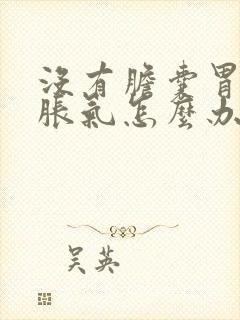 沒有膽囊胃
脹氣怎麼办
吴英